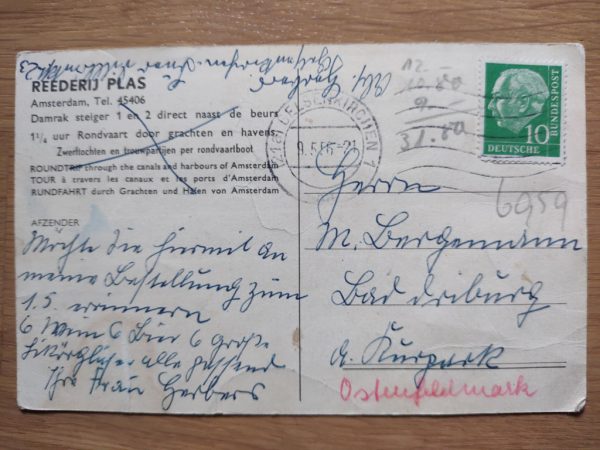 REEDERIJ PLAS
Amsterdam, Tel. 45406
Damrak steiger 1 en 2 direct naast de beurs
1¼ uur Rondvaart door grachten en havens.
Zwerftochten en trouwpartijen per rondvaartboot
ROUNDTRIP through the canals and harbours of Amsterdam
TOUR à travers les canaux et les ports d'Amsterdam
RUNDFAHRT durch Grachten und Häfen von Amsterdam
AFZENDER
Möchte Sie hiermit an
meine Bestellung zum
1.5. erinnern
6 Wein 6 Bier 6 große
Likörgläser alle passend
Ihre Frau Herbers
GELSENKIRCHEN 1
9.5.56-21
12.-
10.80
9.-
31.80
10
DEUTSCHE
BUNDESPOST
6959
Herrn
M. Bergemann
Bad Driburg
a. Kurpark
Ostenfeldmark